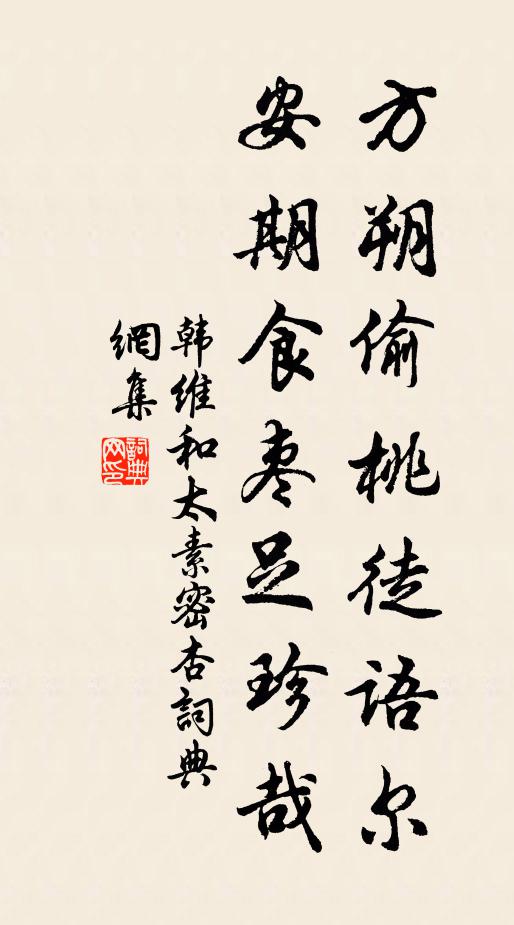 方朔偷桃徒语尔
安期食枣足珍哉
韩维和太素密杏詞典
網集
詞典网印